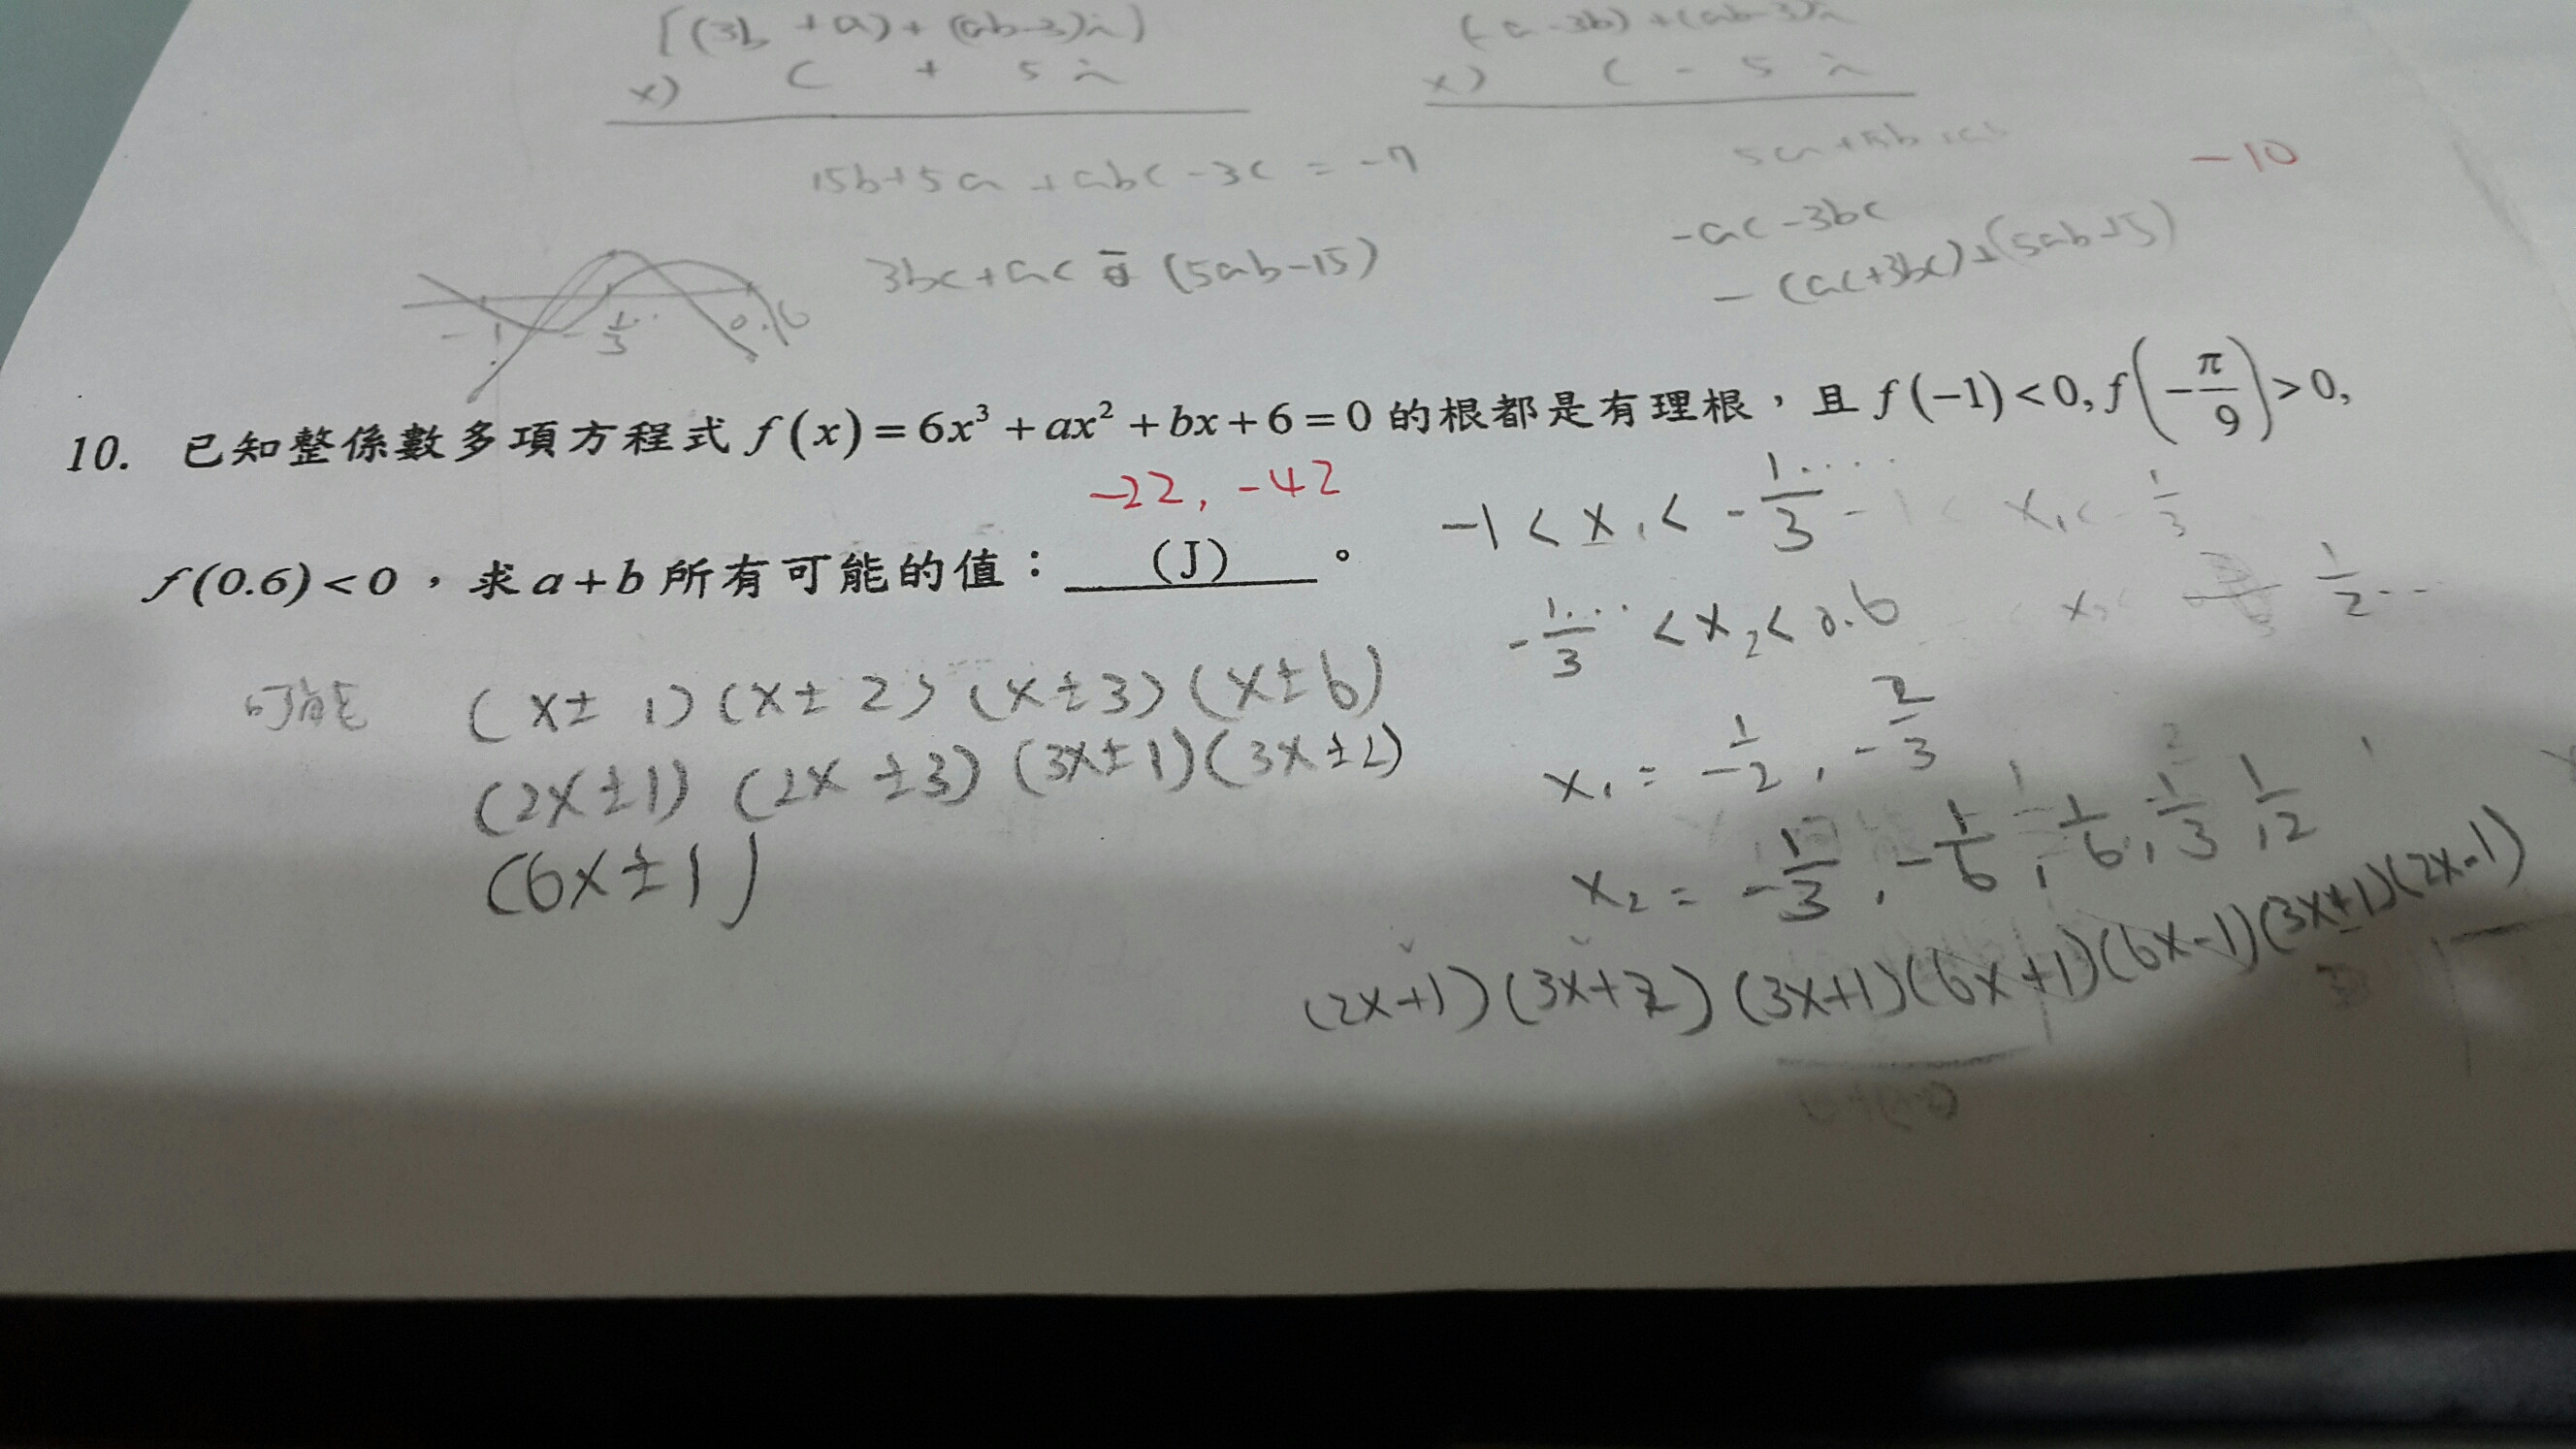 [(3b +a)+(ab-3)i]
x) c + 5 i
15b+5a+abc-3c = -7
3bc+ac = (5ab-15)
(-a-3b)+(ab-3)i
x) c - 5 i
-ac-3bc
-(ac+3bc)+(5ab+5)
-10
-1 -1/3.. 0.6
10. 已知整係數多項方程式 f(x)=6x³+ax²+bx+6=0 的根都是有理根，且 f(-1)<0, f(-π/9)>0,
-22, -42
f(0.6)<0，求 a+b 所有可能的值： (J) 。
-1 < x₁ < -1/3....
-1/3... < x₂ < 0.6
可能 (x±1)(x±2)(x±3)(x±6)
(2x±1)(2x±3)(3x±1)(3x±2)
(6x±1)
x₁ = -1/2, -2/3
x₂ = -1/3, -1/6, 1/6, 1/3, 1/2
(2x+1)(3x+2)(3x+1)(6x+1)(6x-1)(3x±1)(2x-1)